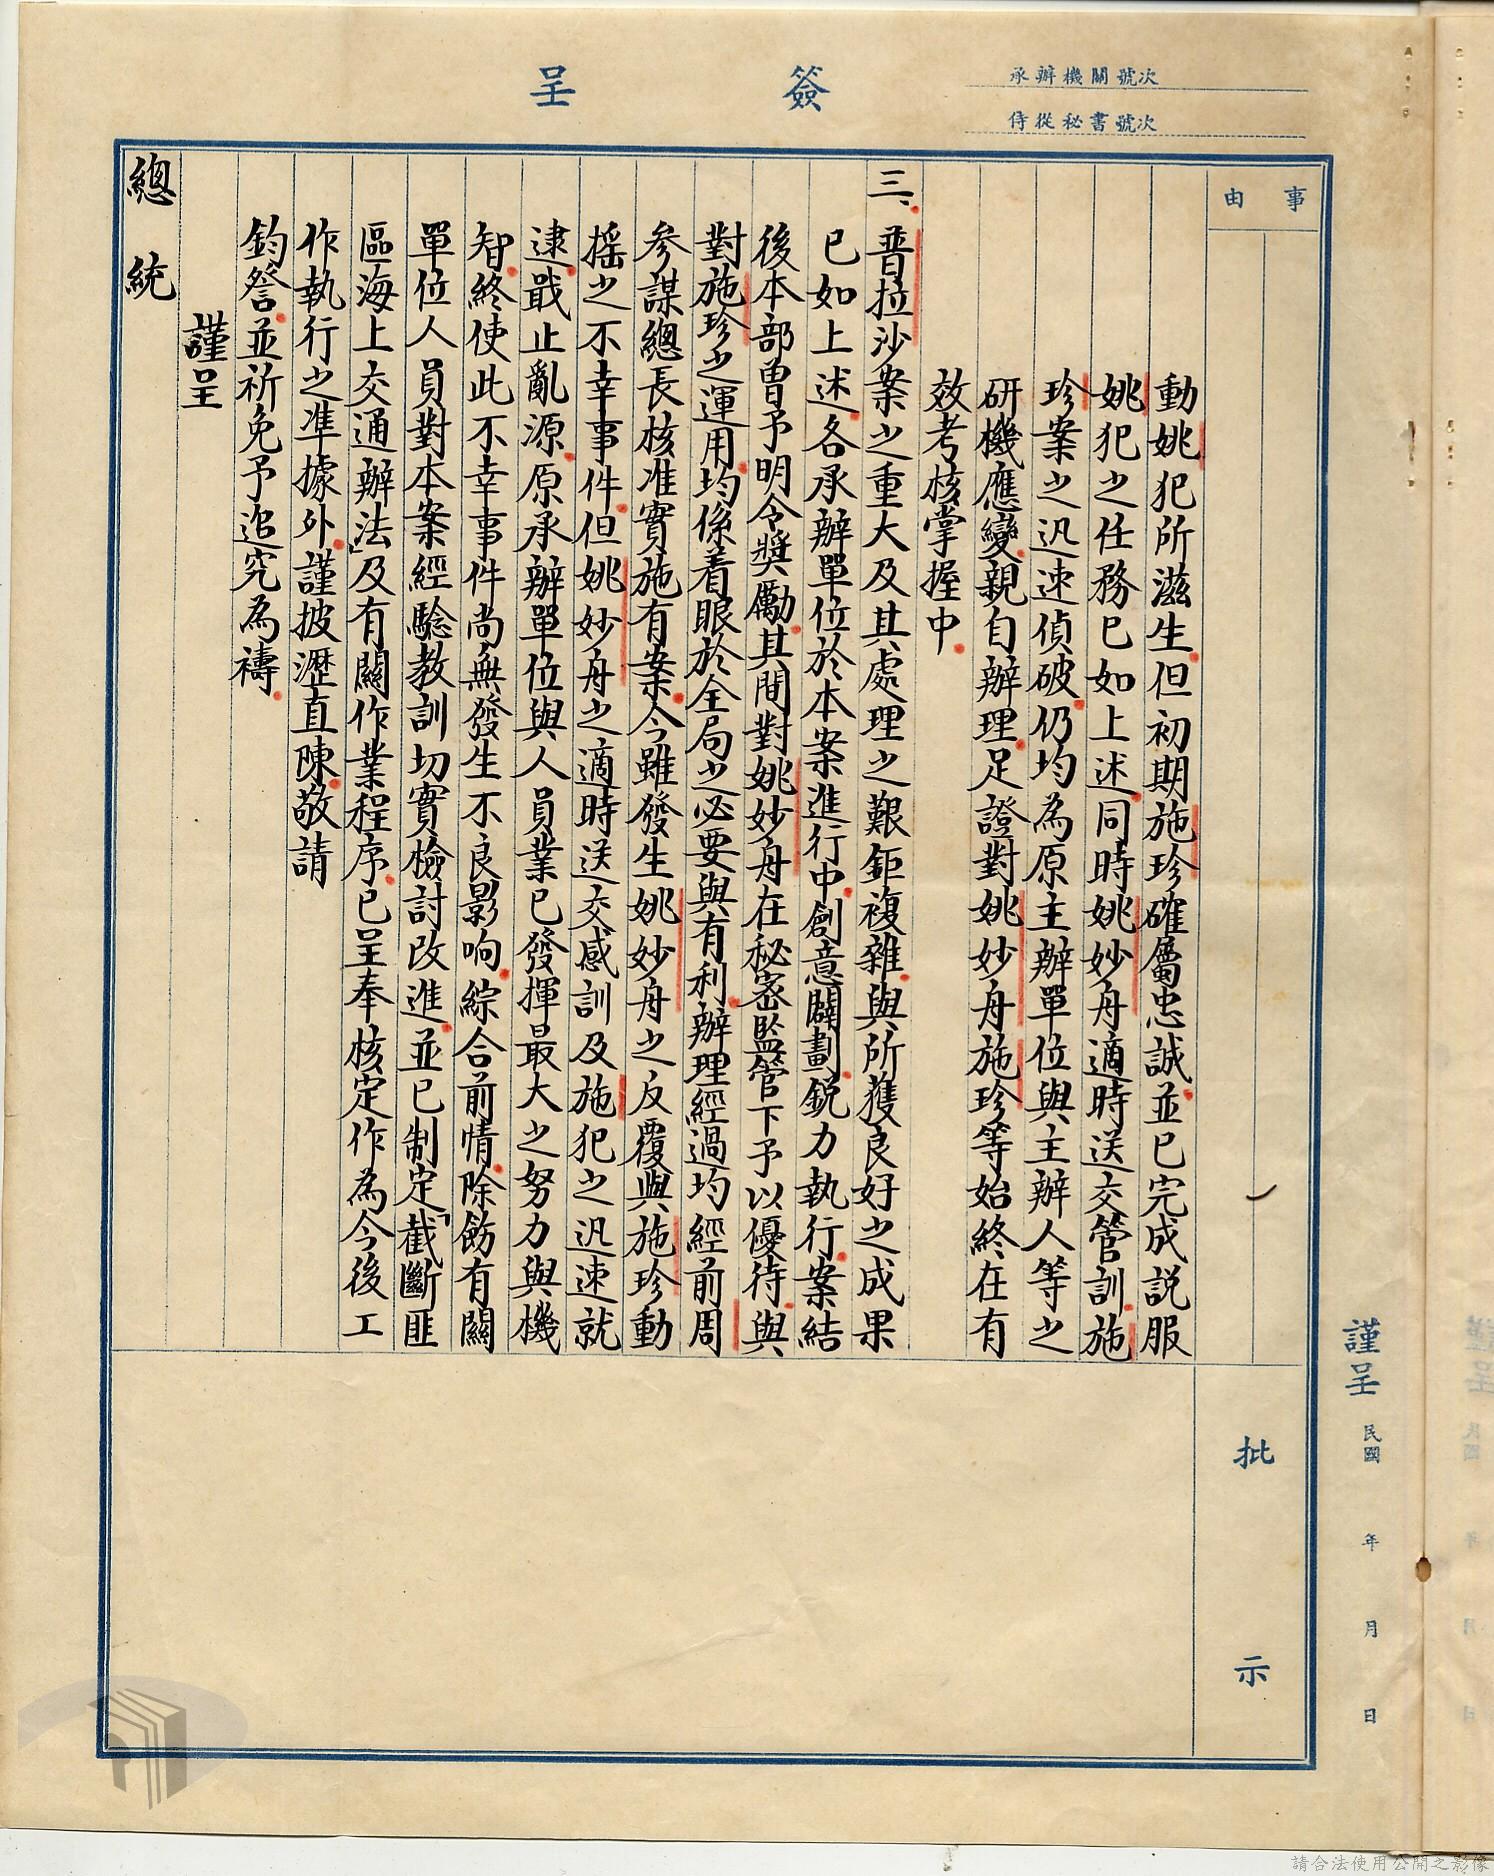 簽呈
承辦機關號次
侍從秘書號次
事由
動姚犯所滋生。但初期施珍確屬忠誠。並已完成說服
姚犯之任務已如上述。同時姚妙舟適時送交管訓。施
珍案之迅速偵破。仍均為原主辦單位與主辦人等之
研機應變。親自辦理。足證對姚妙舟施珍等始終在有
效考核掌握中。
三、普拉沙案之重大及其處理之艱鉅複雜。與所獲良好之成果
已如上述。各承辦單位於本案進行中。創意闢劃。銳力執行。案結
後本部曾予明令獎勵。其間對姚妙舟在秘密監管下予以優待。與
對施珍之運用。均係着眼於全局之必要與有利。辦理經過均經前周
參謀總長核准實施有案。今雖發生姚妙舟之反覆與施珍動
搖之不幸事件。但姚妙舟之適時送交感訓及施犯之迅速就
逮。戢止亂源。原承辦單位與人員業已發揮最大之努力與機
智。終使此不幸事件尚無發生不良影响。綜合前情。除飭有關
單位人員對本案經驗教訓切實檢討改進。並已制定「截斷匪
區海上交通辦法」及有關作業程序。已呈奉核定作為今後工
作執行之準據外。謹披瀝直陳。敬請
鈞詧。並祈免予追究為禱。
謹呈
總統
批示
謹呈 民國 年 月 日
請合法使用公開之影像